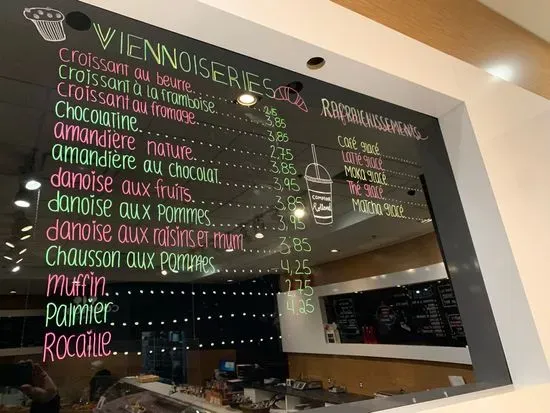 VIENNOISERIES
Croissant au beurre
Croissant à la framboise 3,85
Croissant au fromage 3,85
Chocolatine 2,75
amandière nature 3,85
amandière au chocolat 3,95
danoise aux fruits 3,85
danoise aux pommes 3,95
danoise aux raisins et rhum 3,85
Chausson aux pommes 4,25
muffin 2,75
Palmier 4,25
Rocaille
RAFRAICHISSEMENTS
Café glacé
Latté glacé
Moka glacé
Thé glacé
Matcha glacé